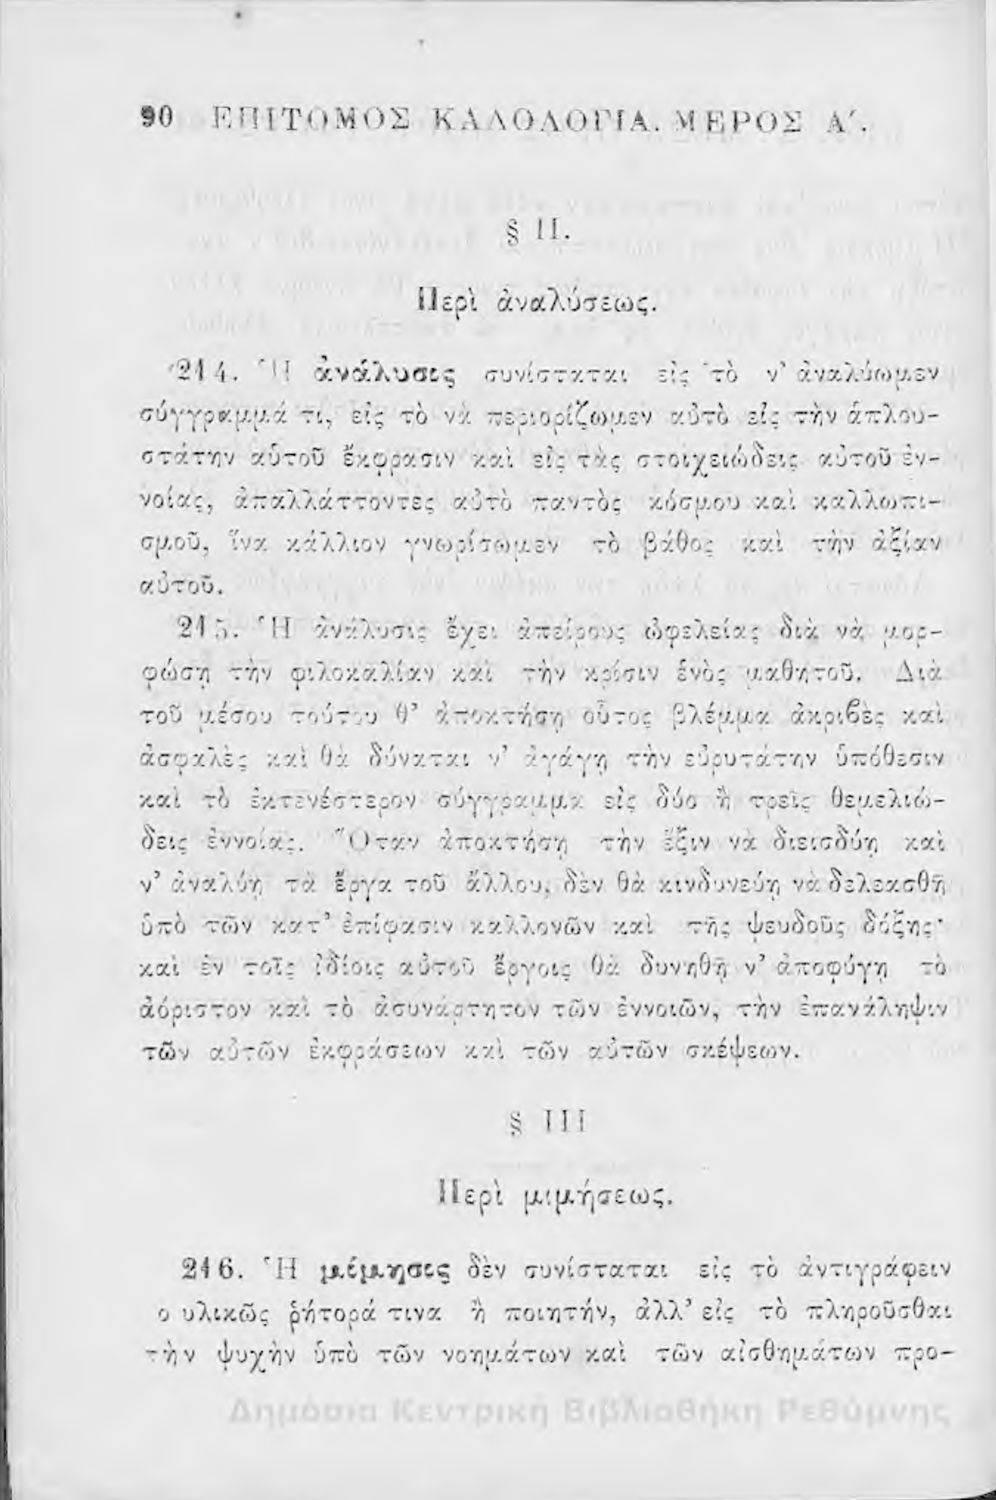 90 ΕΠΙΤΟΜΟΣ ΚΑΛΟΛΟΓΙΑ. ΜΕΡΟΣ Α΄.
§ II.
Περὶ ἀναλύσεως.
214. Ἡ ἀνάλυσις συνίσταται εἰς τὸ ν’ ἀναλύωμεν
σύγγραμμά τι, εἰς τὸ νὰ περιορίζωμεν αὐτὸ εἰς τὴν ἁπλου-
στάτην αὑτοῦ ἔκφρασιν καὶ εἰς τὰς στοιχειώδεις αὐτοῦ ἐν-
νοίας, ἀπαλλάττοντες αὐτὸ παντὸς κόσμου καὶ καλλωπι-
σμοῦ, ἵνα κάλλιον γνωρίσωμεν τὸ βάθος καὶ τὴν ἀξίαν
αὐτοῦ.
215. Ἡ ἀνάλυσις ἔχει ἀπείρους ὠφελείας διὰ νὰ μορ-
φώσῃ τὴν φιλοκαλίαν καὶ τὴν κρίσιν ἑνὸς μαθητοῦ. Διὰ
τοῦ μέσου τούτου θ’ ἀποκτήσῃ οὗτος βλέμμα ἀκριβὲς καὶ
ἀσφαλὲς καὶ θὰ δύναται ν’ ἀγάγῃ τὴν εὐρυτάτην ὑπόθεσιν
καὶ τὸ ἐκτενέστερον σύγγραμμα εἰς δύο ἢ τρεῖς θεμελιώ-
δεις ἐννοίας. Ὅταν ἀποκτήσῃ τὴν ἕξιν νὰ διεισδύῃ καὶ
ν’ ἀναλύῃ τὰ ἔργα τοῦ ἄλλου, δὲν θὰ κινδυνεύῃ νὰ δελεασθῇ
ὑπὸ τῶν κατ’ ἐπίφασιν καλλονῶν καὶ τῆς ψευδοῦς δόξης·
καὶ ἐν τοῖς ἰδίοις αὑτοῦ ἔργοις θὰ δυνηθῇ ν’ ἀποφύγῃ τὸ
ἀόριστον καὶ τὸ ἀσυνάρτητον τῶν ἐννοιῶν, τὴν ἐπανάληψιν
τῶν αὐτῶν ἐκφράσεων καὶ τῶν αὐτῶν σκέψεων.
§ III
Περὶ μιμήσεως.
216. Ἡ μίμησις δὲν συνίσταται εἰς τὸ ἀντιγράφειν
ο υλικῶς ῥήτορά τινα ἢ ποιητήν, ἀλλ’ εἰς τὸ πληροῦσθαι
τὴν ψυχὴν ὑπὸ τῶν νοημάτων καὶ τῶν αἰσθημάτων προ-
Δημόσια Κεντρική Βιβλιοθήκη Ρεθύμνης